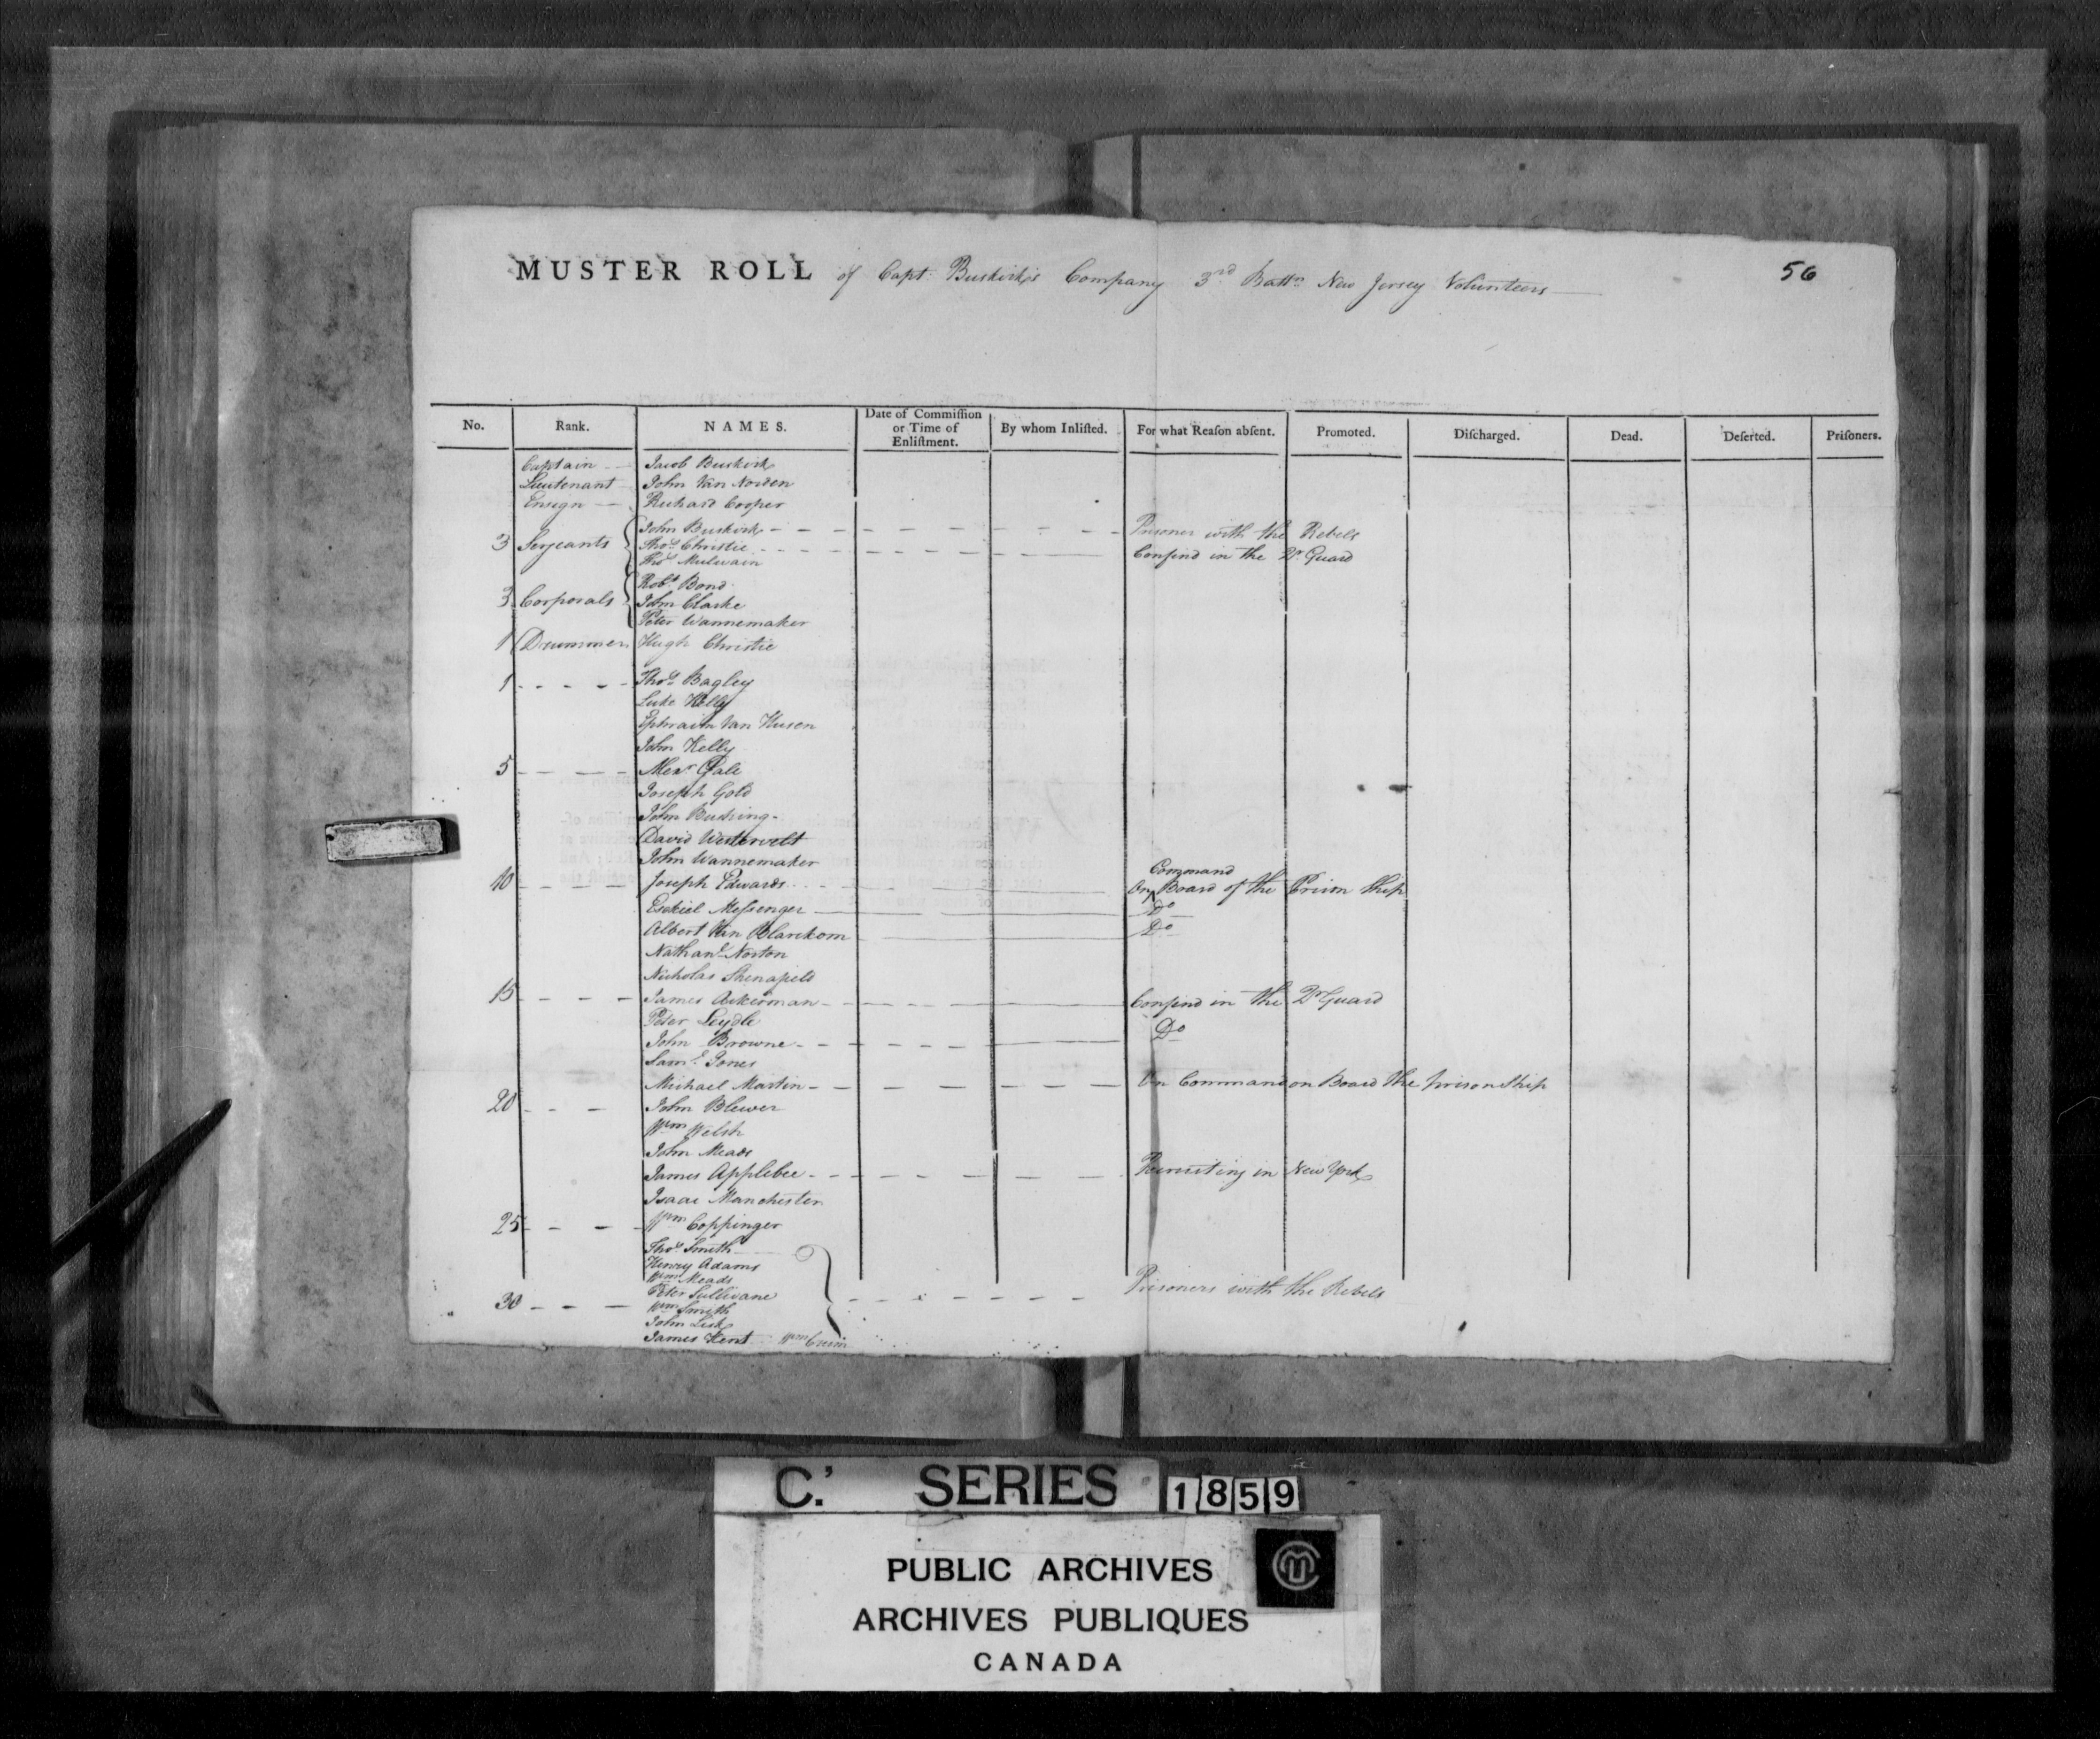 MUSTER ROLL of Capt. Buskirk's Company 3rd Battn New Jersey Volunteers
56
No. Rank. NAMES. Date of Commission or Time of Enlistment. By whom Inlisted. For what Reason absent. Promoted. Discharged. Dead. Deserted. Prisoners.
Captain Jacob Buskirk
Lieutenant John Van Norden
Ensign Richard Cooper
John Buskirk Prisoner with the Rebels
3 Serjeants Thos Christie Confind in the Guard
Thos Mulvain
Robt Bond
3 Corporals John Clarke
Peter Wannemaker
1 Drummer Hugh Christie
1 Thos Bagley
Luke Kelly
Ephraim Van Husen
John Kelly
5 Alexr Gale
Joseph Gold
John Bushing
David Westervelt
John Wannemaker
Command
10 Joseph Edwards On Board of the Prison Ship
Esekiel Messenger Do
Albert Van Blarikom Do
Nathanl Norton
Nicholas
15 James Ackerman Confind in the Guard
Peter Leydle
John Browne Do
Saml Jones
Michael Martin On Command on Board the prison Ship
20 John Blewer
Wm Welsh
John Meads
James Applebee Recruiting in New York
Isaac Manchester
25 Wm Coppinger
Thos Smith
Henry Adams
Wm Meads
Peter Sullivane Prisoners with the Rebels
30 Wm Smith
John Lisk
James Kent Wm
C.' SERIES 1859
PUBLIC ARCHIVES
ARCHIVES PUBLIQUES
CANADA